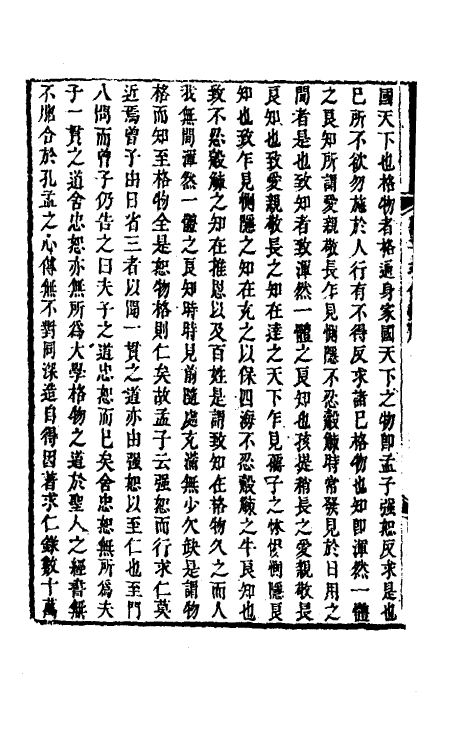 國天下也格物者格通身家國天下之物卽孟子强恕反求是也
已所不欲勿施於人行有不得反求諸已格物也知卽渾然一體
之良知所謂愛親敬長乍見惻隱不忍觳觫時常發見於日用之
間者是也致知者致渾然一體之良知也孩提稍長之愛親敬長
良知也致愛親敬長之知在達之天下乍見孺子之怵惕惻隱良
知也致乍見惻隱之知在充之以保四海不忍觳觫之牛良知也
致不忍觳觫之知在推恩以及百姓是謂致知在格物久之而人
我無間渾然一體之良知時時見前隨處充滿無少欠缺是謂物
格而知至格物全是恕物格則仁矣故孟子云强恕而行求仁莫
近焉曾子由日省三者以聞一貫之道亦由强恕以至仁也至門
人問而曾子仍告之曰夫子之道忠恕而已矣舍忠恕無所爲夫
子一貫之道舍忠恕亦無所爲大學格物之道於聖人之經書無
不脗合於孔孟之心傳無不對同深造自得因著求仁錄數十萬